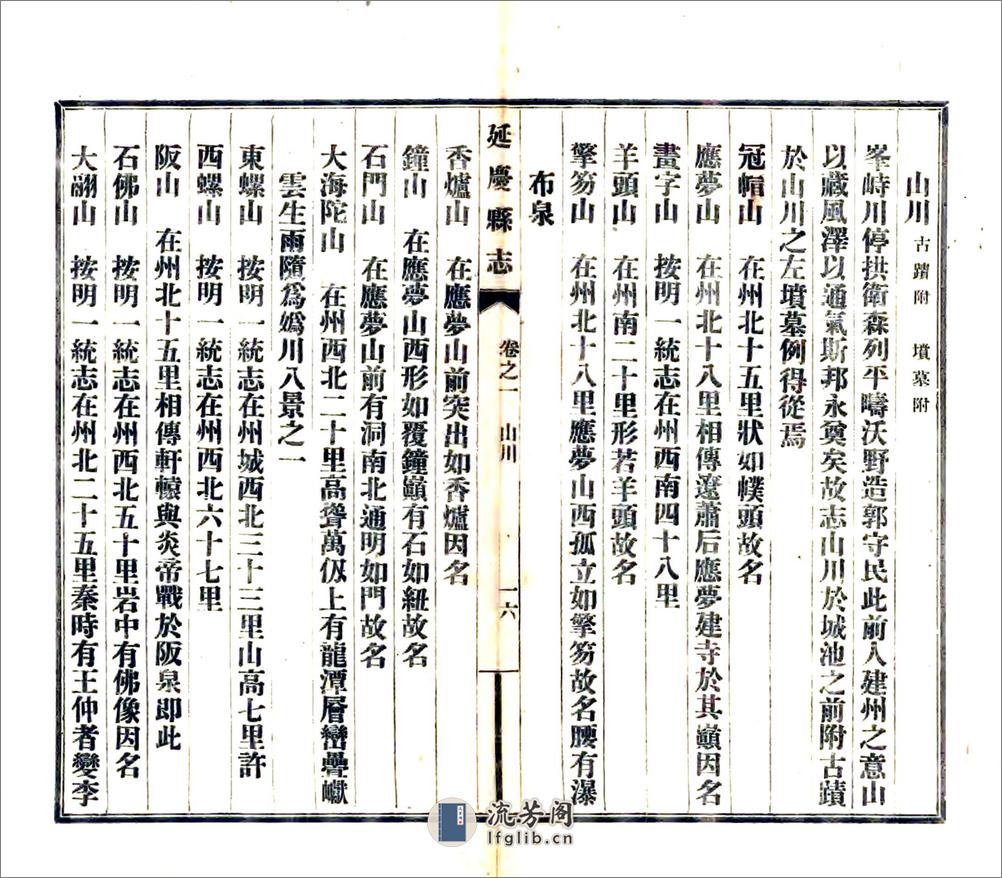 山川 古蹟附 墳墓附
峯峙川停拱衛森列平疇沃野造郭守民此前人建州之意山
以藏風澤以通氣斯邦永奠矣故志山川於城池之前附古蹟
於山川之左墳墓例得從焉
冠帽山 在州北十五里狀如幞頭故名
應夢山 在州北十八里相傳遼蕭后應夢建寺於其巔因名
畫字山 按明一統志在州西南四十八里
羊頭山 在州南二十里形若羊頭故名
擎笏山 在州北十八里應夢山西孤立如擎笏故名腰有瀑
布泉
延慶縣志 卷之一 山川 一六
香爐山 在應夢山前突出如香爐因名
鐘山 在應夢山西形如覆鐘巔有石如紐故名
石門山 在應夢山前有洞南北通明如門故名
大海陀山 在州西北二十里高聳萬仭上有龍潭層巒疊巘
雲生雨隨爲嬀川八景之一
東螺山 按明一統志在州城西北三十三里山高七里許
西螺山 按明一統志在州西北六十七里
阪山 在州北十五里相傳軒轅與炎帝戰於阪泉即此
石佛山 按明一統志在州西北五十里岩中有佛像因名
大翮山 按明一統志在州北二十五里秦時有王仲者變李
流芳阁
lfglib.cn